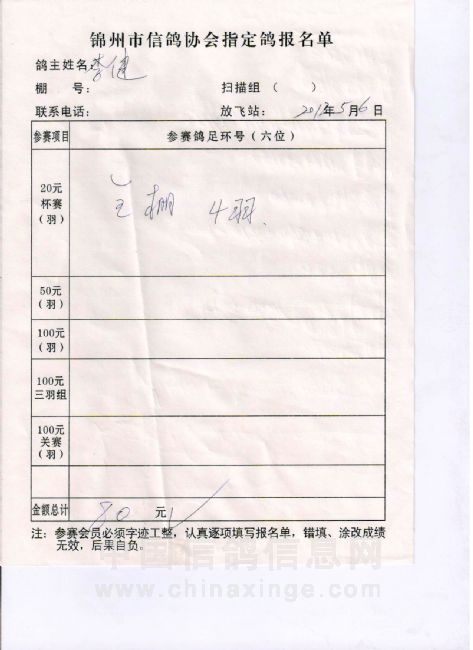 锦州市信鸽协会指定鸽报名单
鸽主姓名：李健
棚 号： 扫描组（ ）
联系电话： 放飞站： 2013年5月6日
参赛项目 参赛鸽足环号（六位）
20元
杯赛
（羽）
棚 4羽
50元
（羽）
100元
（羽）
100元
三羽组
100元
关赛
（羽）
金额总计 80 元
注：参赛会员必须字迹工整，认真逐项填写报名单，错填、涂改成绩
无效，后果自负。
中国信鸽信息网
www.chinaxinge.com